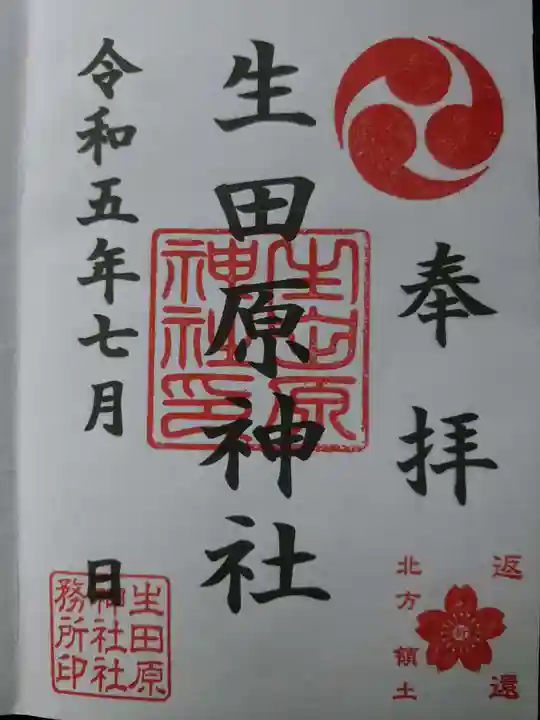 奉拝
返還
北方領土
祈
生田原神社
生田原
神社印
令和五年七月 日
生田原
神社社
務所印